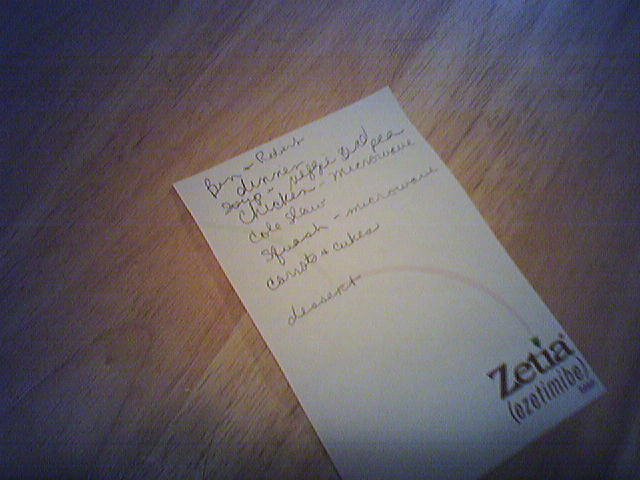 Ben + Peters
dinner
Soup - veggie and pea
Chicken - microwave
Cole Slaw
Squash - microwave
carrots + cukes
dessert
Zetia
(ezetimibe)